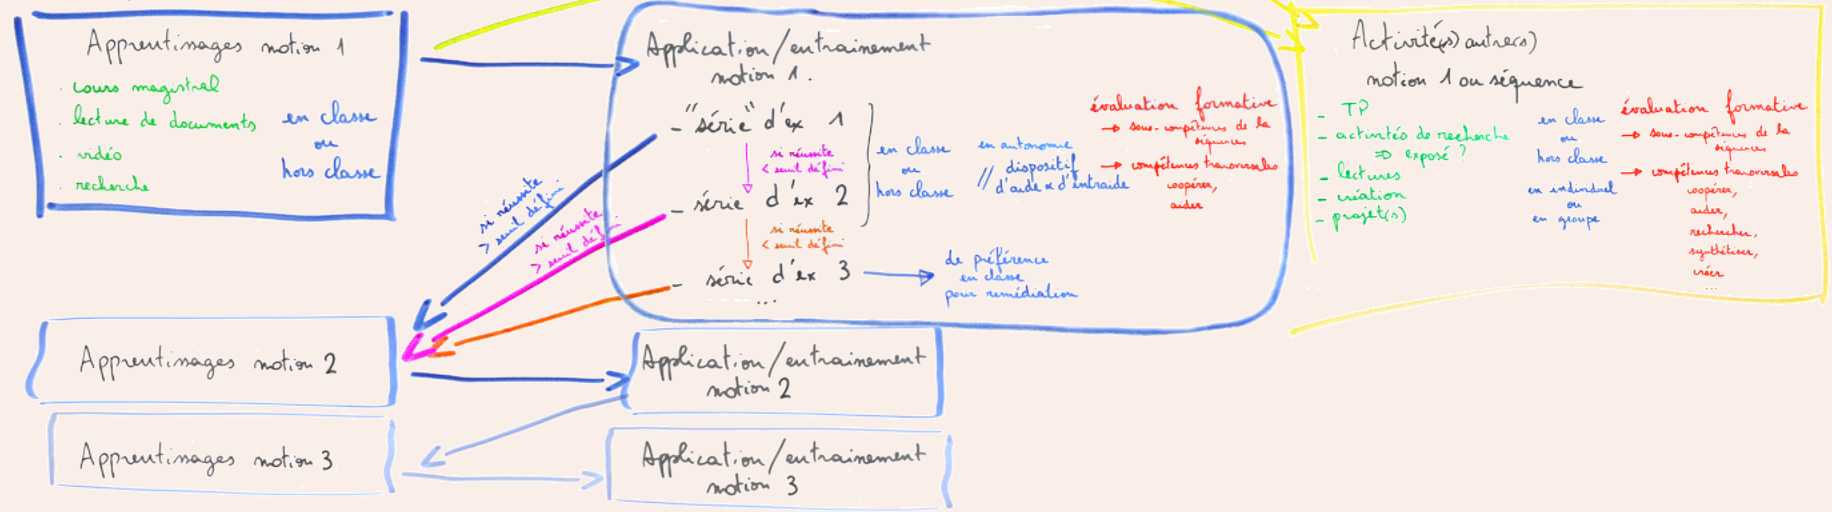 Apprentissages notion 1
. cours magistral
. lecture de documents
. vidéo
. recherche
en classe
ou
hors classe
Application/entrainement
notion 1.
- "série" d'ex 1
si réussite
< seuil défini
- série d'ex 2
si réussite
< seuil défini
- série d'ex 3
...
en classe
ou
hors classe
en autonomie
// dispositif
d'aide & d'entraide
évaluation formative
→ sous-compétences de la
séquences
→ compétences transversales
coopérer,
aider
de préférence
en classe
pour remédiation
si réussite
> seuil défini
si réussite
> seuil défini
Activité(s) autre(s)
notion 1 ou séquence
- TP
- activités de recherche
⇒ exposé ?
- lectures
- création
- projet(s)
en classe
ou
hors classe
en individuel
ou
en groupe
évaluation formative
→ sous-compétences de la
séquences
→ compétences transversales
coopérer,
aider,
rechercher,
synthétiser,
créer
...
Apprentissages notion 2
Application/entrainement
notion 2
Apprentissages notion 3
Application/entrainement
notion 3